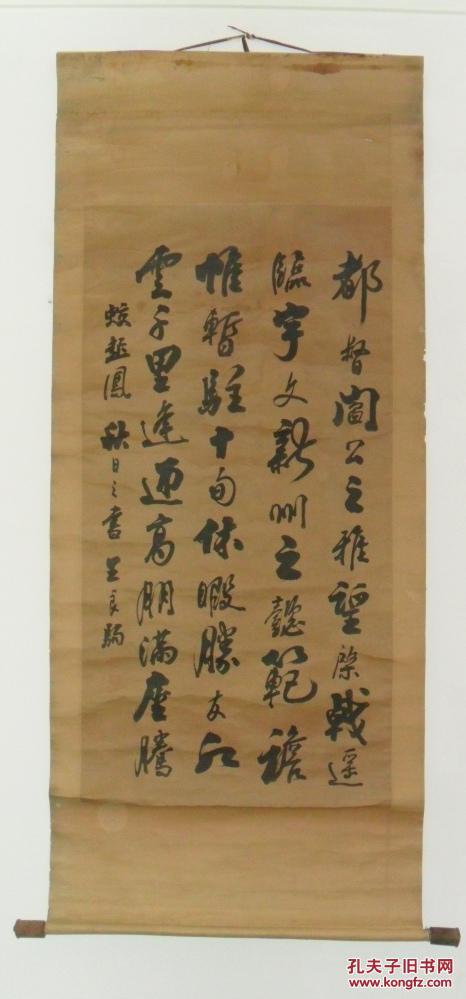 都督閻公之雅望棨戟遥
臨宇文新州之懿範襜
帷暫駐十旬休暇勝友如
雲千里逢迎高朋滿座騰
蛟起鳳 秋日之書 王良駒
孔夫子旧书网
www.kongfz.com